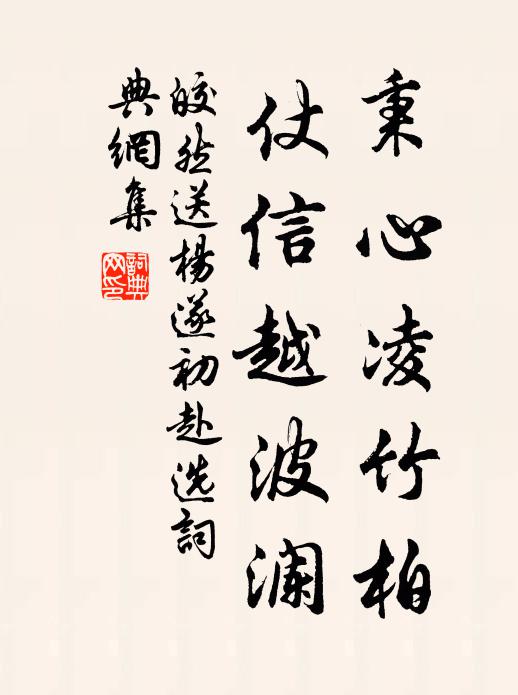 秉心凌竹柏
仗信越波澜
皎然送楊遂初赴选詞
典網集
詞典
网印